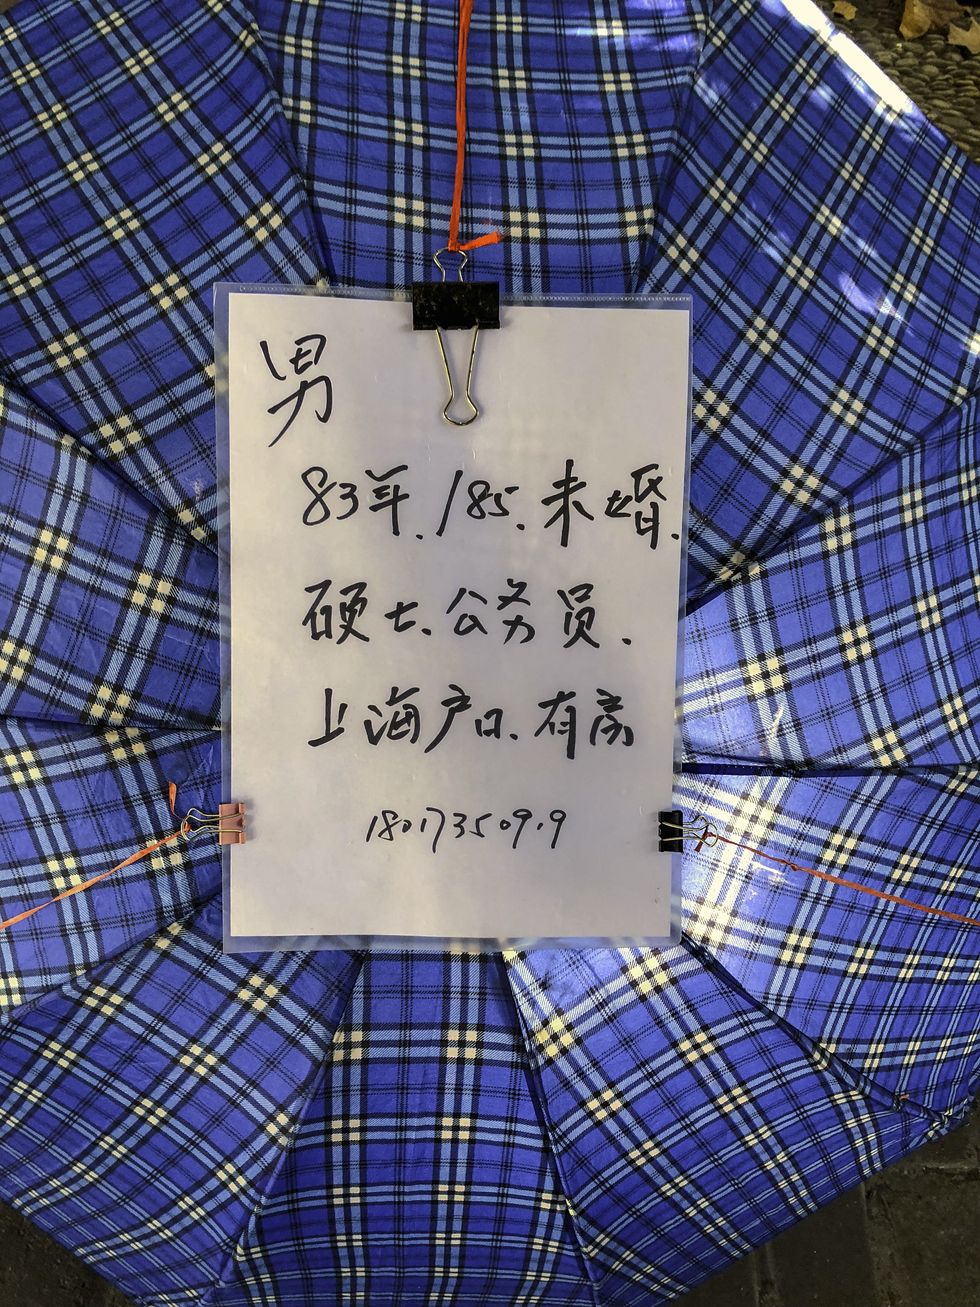 男
83年.185.未婚.
硕士.公务员.
上海户口.有房
18017350919